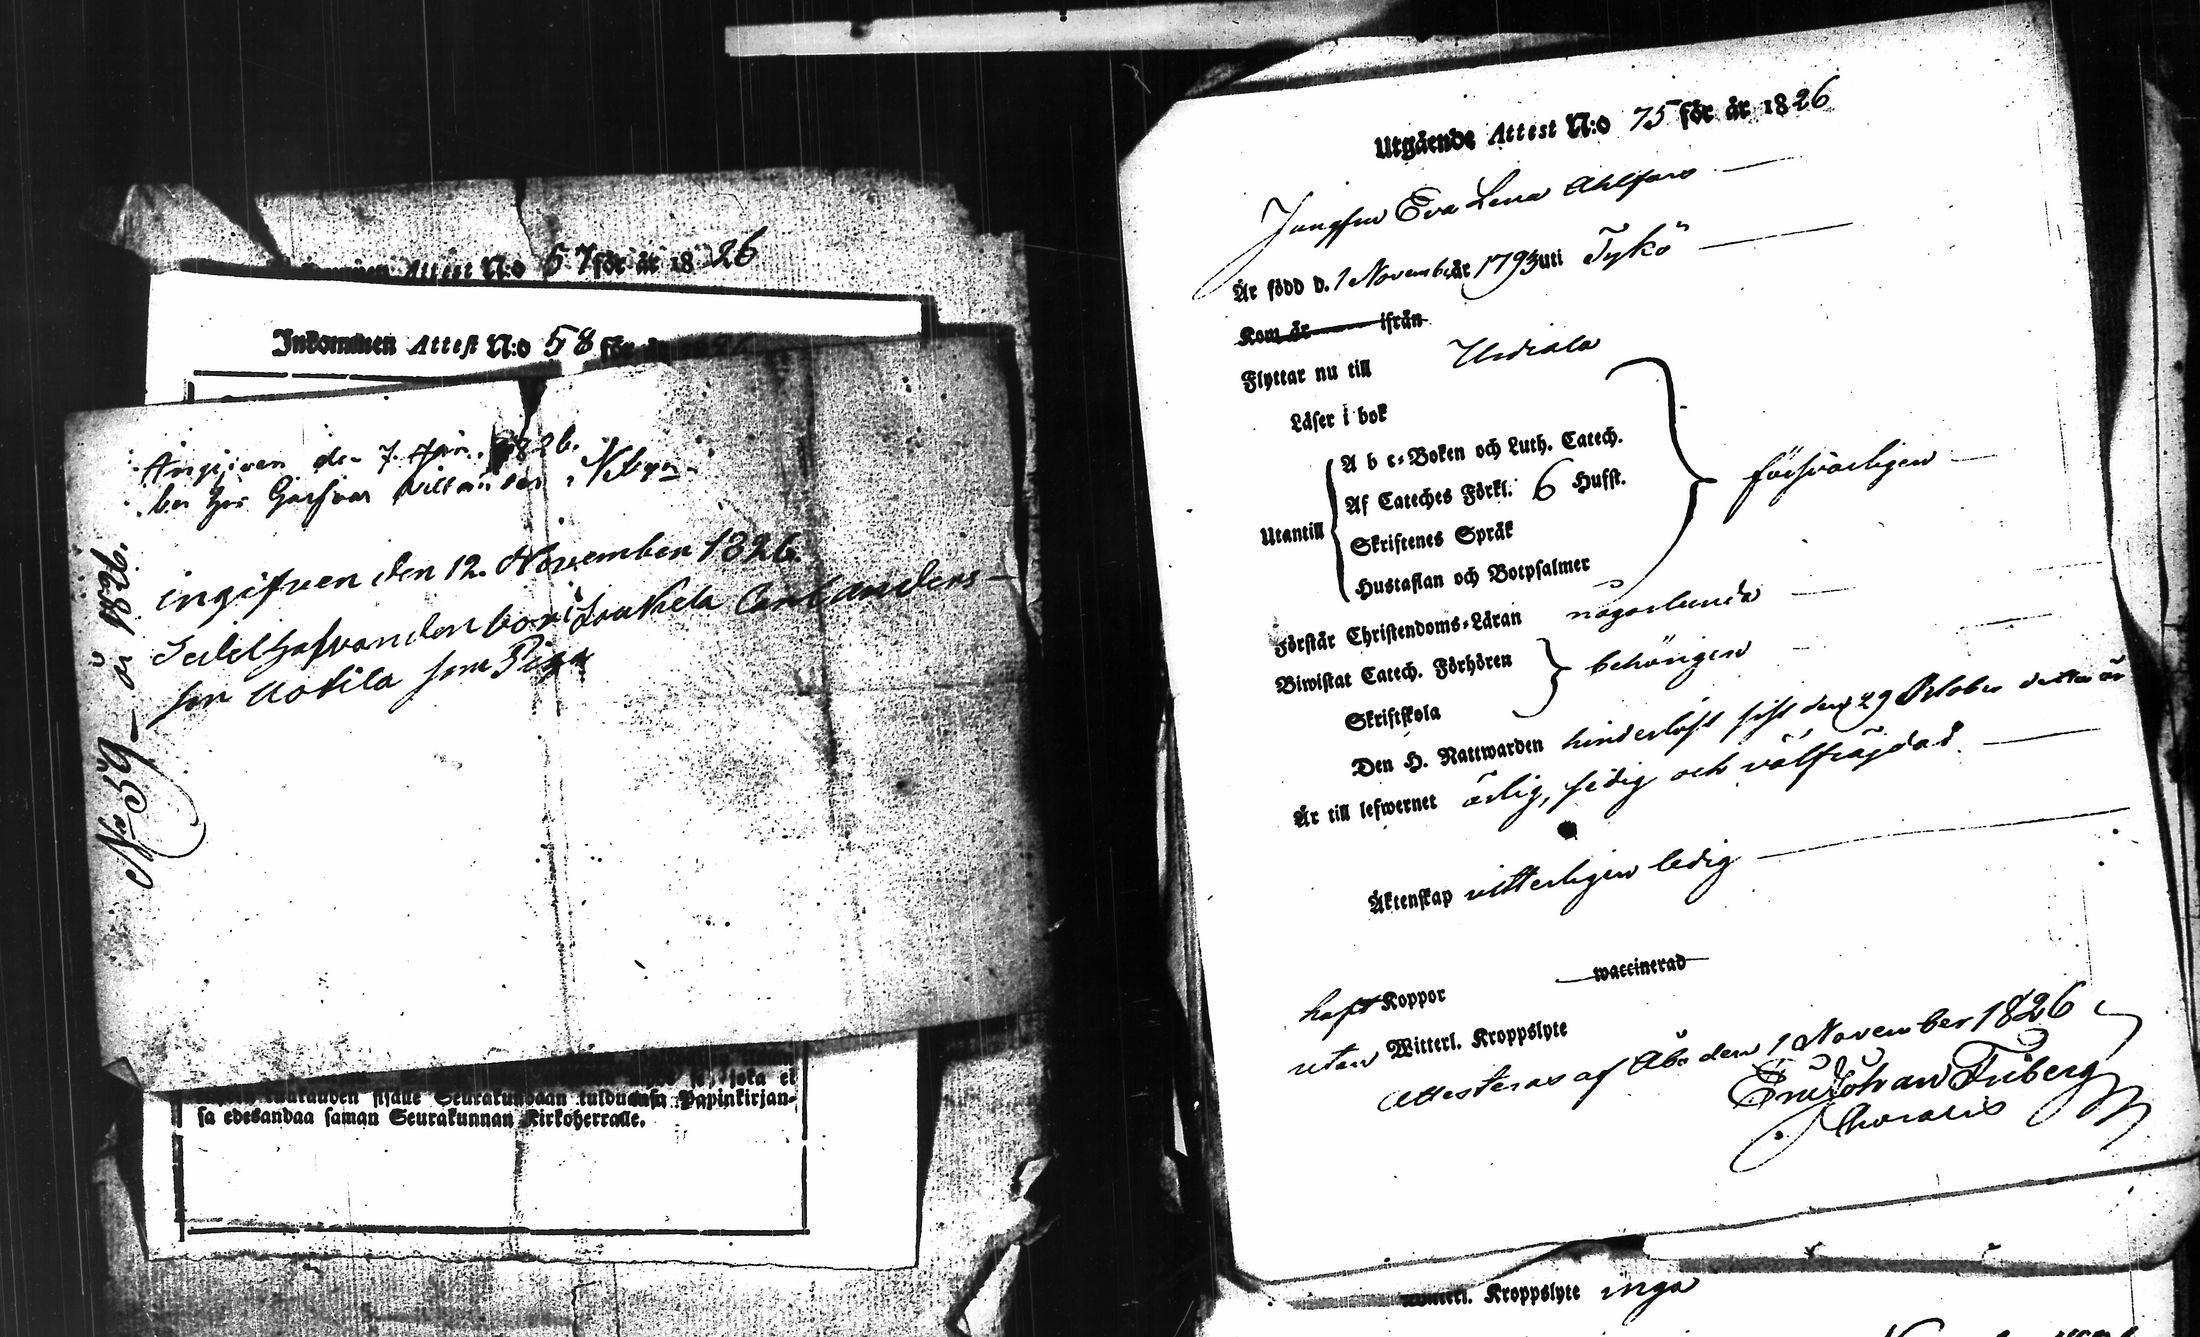 Attest N:o 57 för år 1826
Inkommen Attest N:o 58 för
Angifven den 7. 1826.
ingifven den 12. November 1826
Sedelhafvanden bor i
som Piga
No 59 – år 1826.
sisälle Seurakundaan tulduansa Papinkirjan-
sa edesandaa saman Seurakunnan Kirkoherralle.
Utgående Attest N:o 75 för år 1826
Jungfru Eva Lena Ahlfors
Är född d. 1 November år 1793 uti Tykö
Kom år ifrån
Flyttar nu till Urdiala
Läser i bok
A b c-Boken och Luth. Catech.
Af Cateches Förkl. 6 Hufst.
Utantill
Skriftenes Språk
Hustaflan och Botpsalmer
försvarligen
Förstår Christendoms-Läran någorlunda
Biwistat Catech. Förhören
behörigen
Skriftskola
Den H. Nattwarden sist den 29 October detta år
Är till lefwernet ärlig, sedig och välfräjdad
Äktenskap vitterligen ledig
haft Koppor waccinerad
utan Witterl. Kroppslyte
Attesteras af Åbo den 1 November 1826
Johan Friberg
Kroppslyte inga